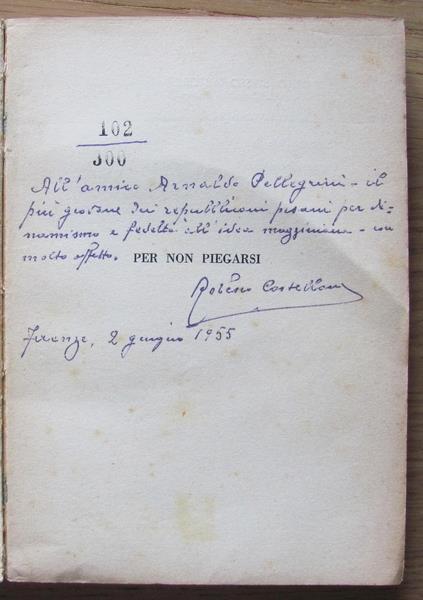 102
300
All'amico Arnaldo Pellegrini - il
più giovane dei repubblicani pisani per di=
namismo e fedeltà all'idea mazziniana - con
molto affetto.
PER NON PIEGARSI
Castellani
Firenze, 2 giugno 1955